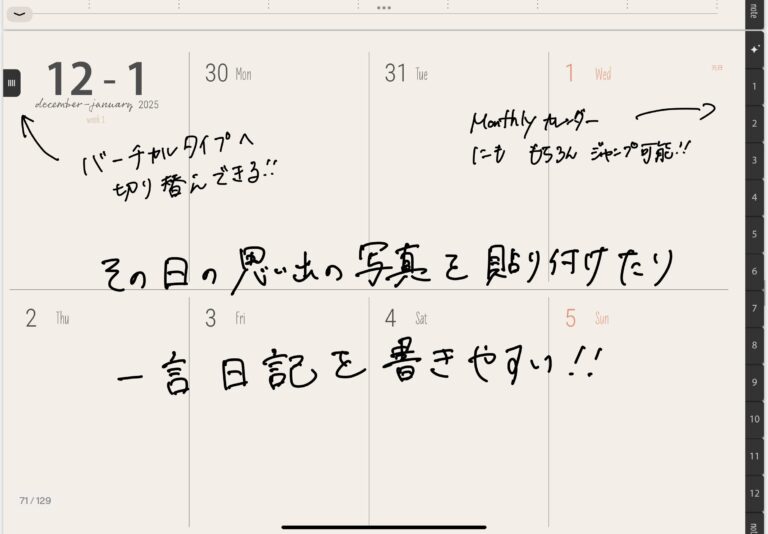 note
12 - 1
december-january 2025
week 1
30 Mon
31 Tue
1 Wed
バーチカルタイプへ
切り替えできる!!
Monthly カレンダー
にも もちろん ジャンプ可能!!
その日の思い出の写真を貼り付けたり
2 Thu
3 Fri
4 Sat
5 Sun
一言日記を書きやすい!!
71 / 129
1
2
3
4
5
6
7
8
9
10
11
12
note